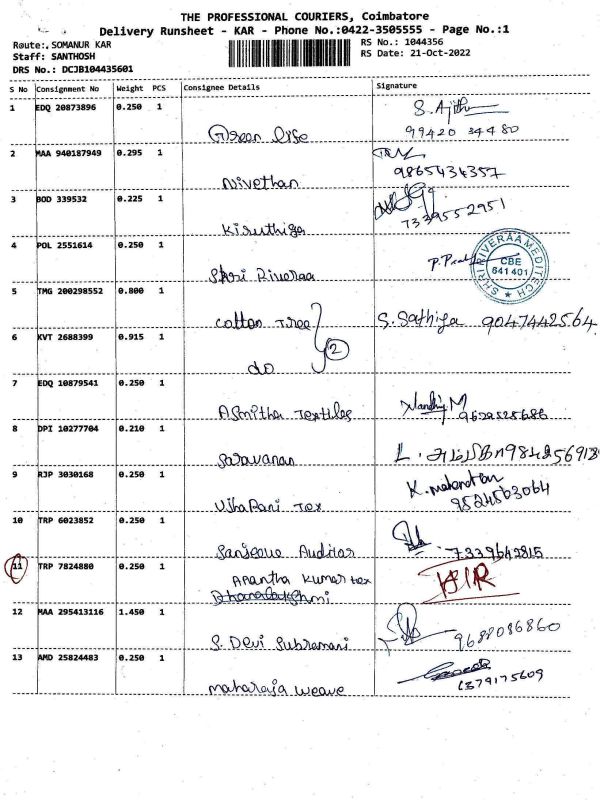 THE PROFESSIONAL COURIERS, Coimbatore
Delivery Runsheet - KAR - Phone No.:0422-3505555 - Page No.:1
Route:. SOMANUR KAR
RS No.: 1044356
Staff: SANTHOSH
RS Date: 21-Oct-2022
DRS No.: DCJB104435601
S No Consignment No Weight PCS Consignee Details Signature
1 EDQ 20873896 0.250 1 S. Ajith
99420 34480
Green life
2 MAA 940187949 0.295 1
9865434357
Nivethan
3 BOD 339532 0.225 1
7339552951
Kiruthiga
4 POL 2551614 0.250 1
SHRI RIVERAAMEDITECH
CBE
641 401
Shri Riveraa
5 TMG 200298552 0.800 1
Cotton Tree S. Sathiya 9047442564
6 KVT 2688399 0.915 1
2
do
7 EDQ 10879541 0.250 1 Nandhiy M
9629525686
Asmitha Textiles
8 DPI 10277704 0.210 1
Saravanan
9 RJP 3030168 0.250 1 K. mahendran
9524563064
Tex
10 TRP 6023852 0.250 1
7339642815
Sanjeeve Auditor
11 TRP 7824880 0.250 1
Anantha Kumar tex
Dhanalakshmi
12 MAA 295413116 1.450 1
9688086860
S. Devi Subramani
13 AMD 25824483 0.250 1
6379175609
maharaja weave